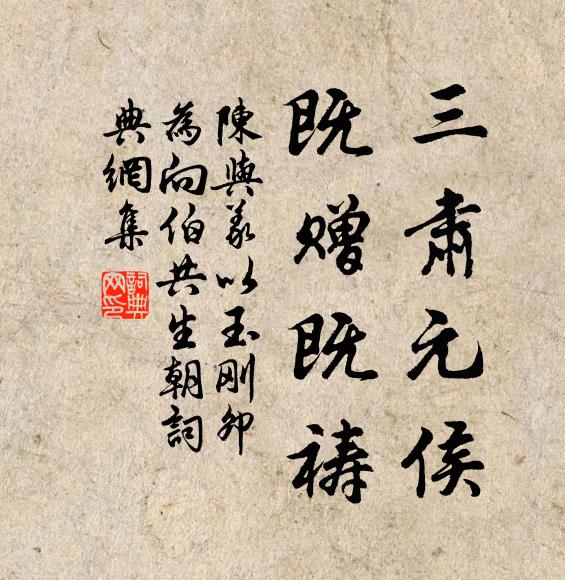 三肃元侯
既赠既祷
陳與義以玉刚卯
為向伯共生朝詞
典網集
詞典网印